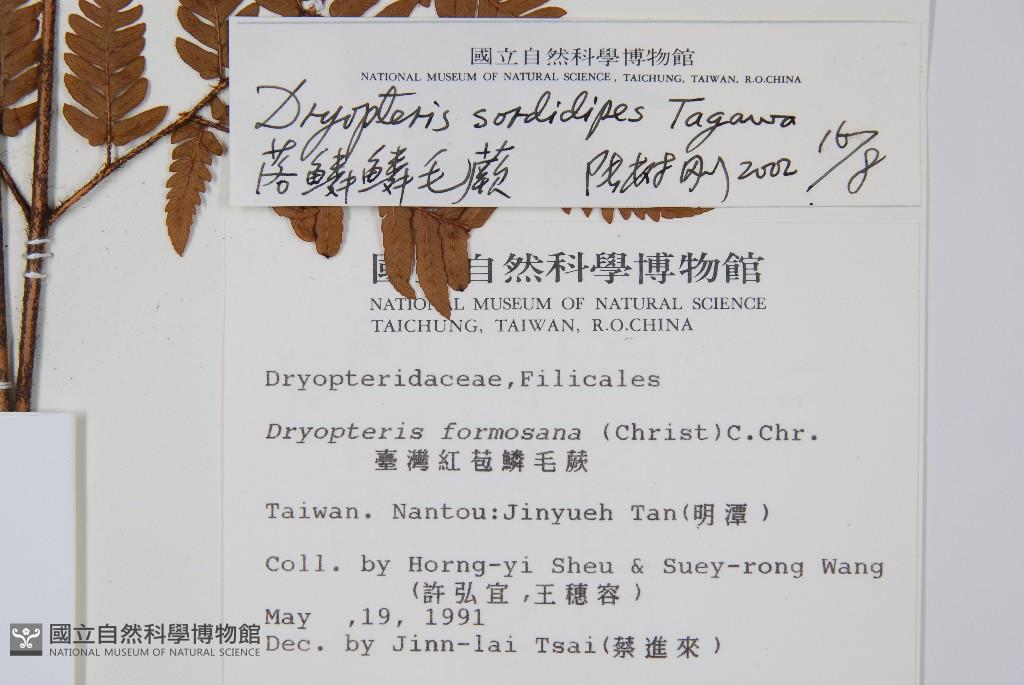 國立自然科學博物館
NATIONAL MUSEUM OF NATURAL SCIENCE, TAICHUNG, TAIWAN, R.O.CHINA
Dryopteris sordidipes Tagawa
落鱗鱗毛蕨 陸樹剛 2002 16/8
國 自然科學博物館
NATIONAL MUSEUM OF NATURAL SCIENCE
TAICHUNG, TAIWAN, R.O.CHINA
Dryopteridaceae,Filicales
Dryopteris formosana (Christ)C.Chr.
臺灣紅苞鱗毛蕨
Taiwan. Nantou:Jinyueh Tan(明潭)
Coll. by Horng-yi Sheu & Suey-rong Wang
(許弘宜,王穗容)
May ,19, 1991
Dec. by Jinn-lai Tsai(蔡進來)
國立自然科學博物館
NATIONAL MUSEUM OF NATURAL SCIENCE